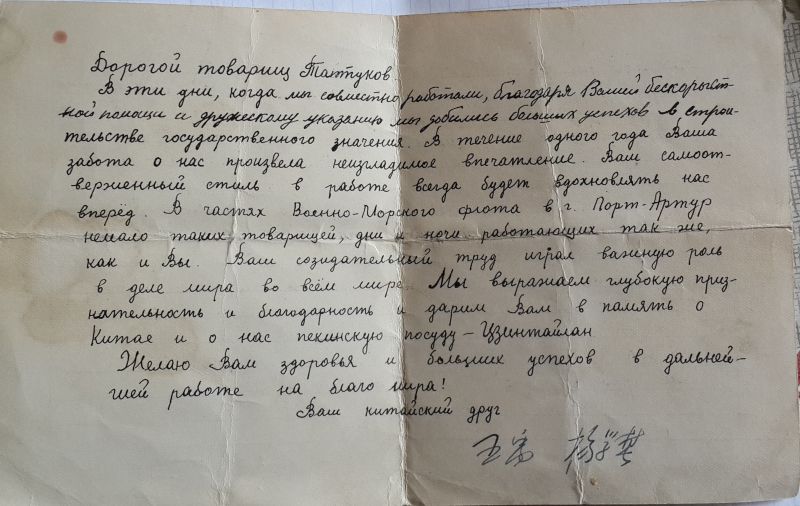 Дорогой товарищ Таттуков.
В эти дни, когда мы совместно работали, благодаря Вашей бескорыст-
ной помощи и дружескому указанию мы добились больших успехов в строи-
тельстве государственного значения. В течение одного года Ваша
забота о нас произвела неизгладимое впечатление. Ваш самоот-
верженный стиль в работе всегда будет вдохновлять нас
вперёд. В частях Военно-Морского флота в г. Порт-Артур
немало таких товарищей, дни и ночи работающих так же,
как и Вы. Ваш созидательный труд играл важную роль
в деле мира во всём мире. Мы выражаем глубокую приз-
нательность и благодарность и дарим Вам в память о
Китае и о нас пекинскую посуду – Цзинтайлан
Желаю Вам здоровья и больших успехов в дальней-
шей работе на благо мира!
Ваш китайский друг
王富